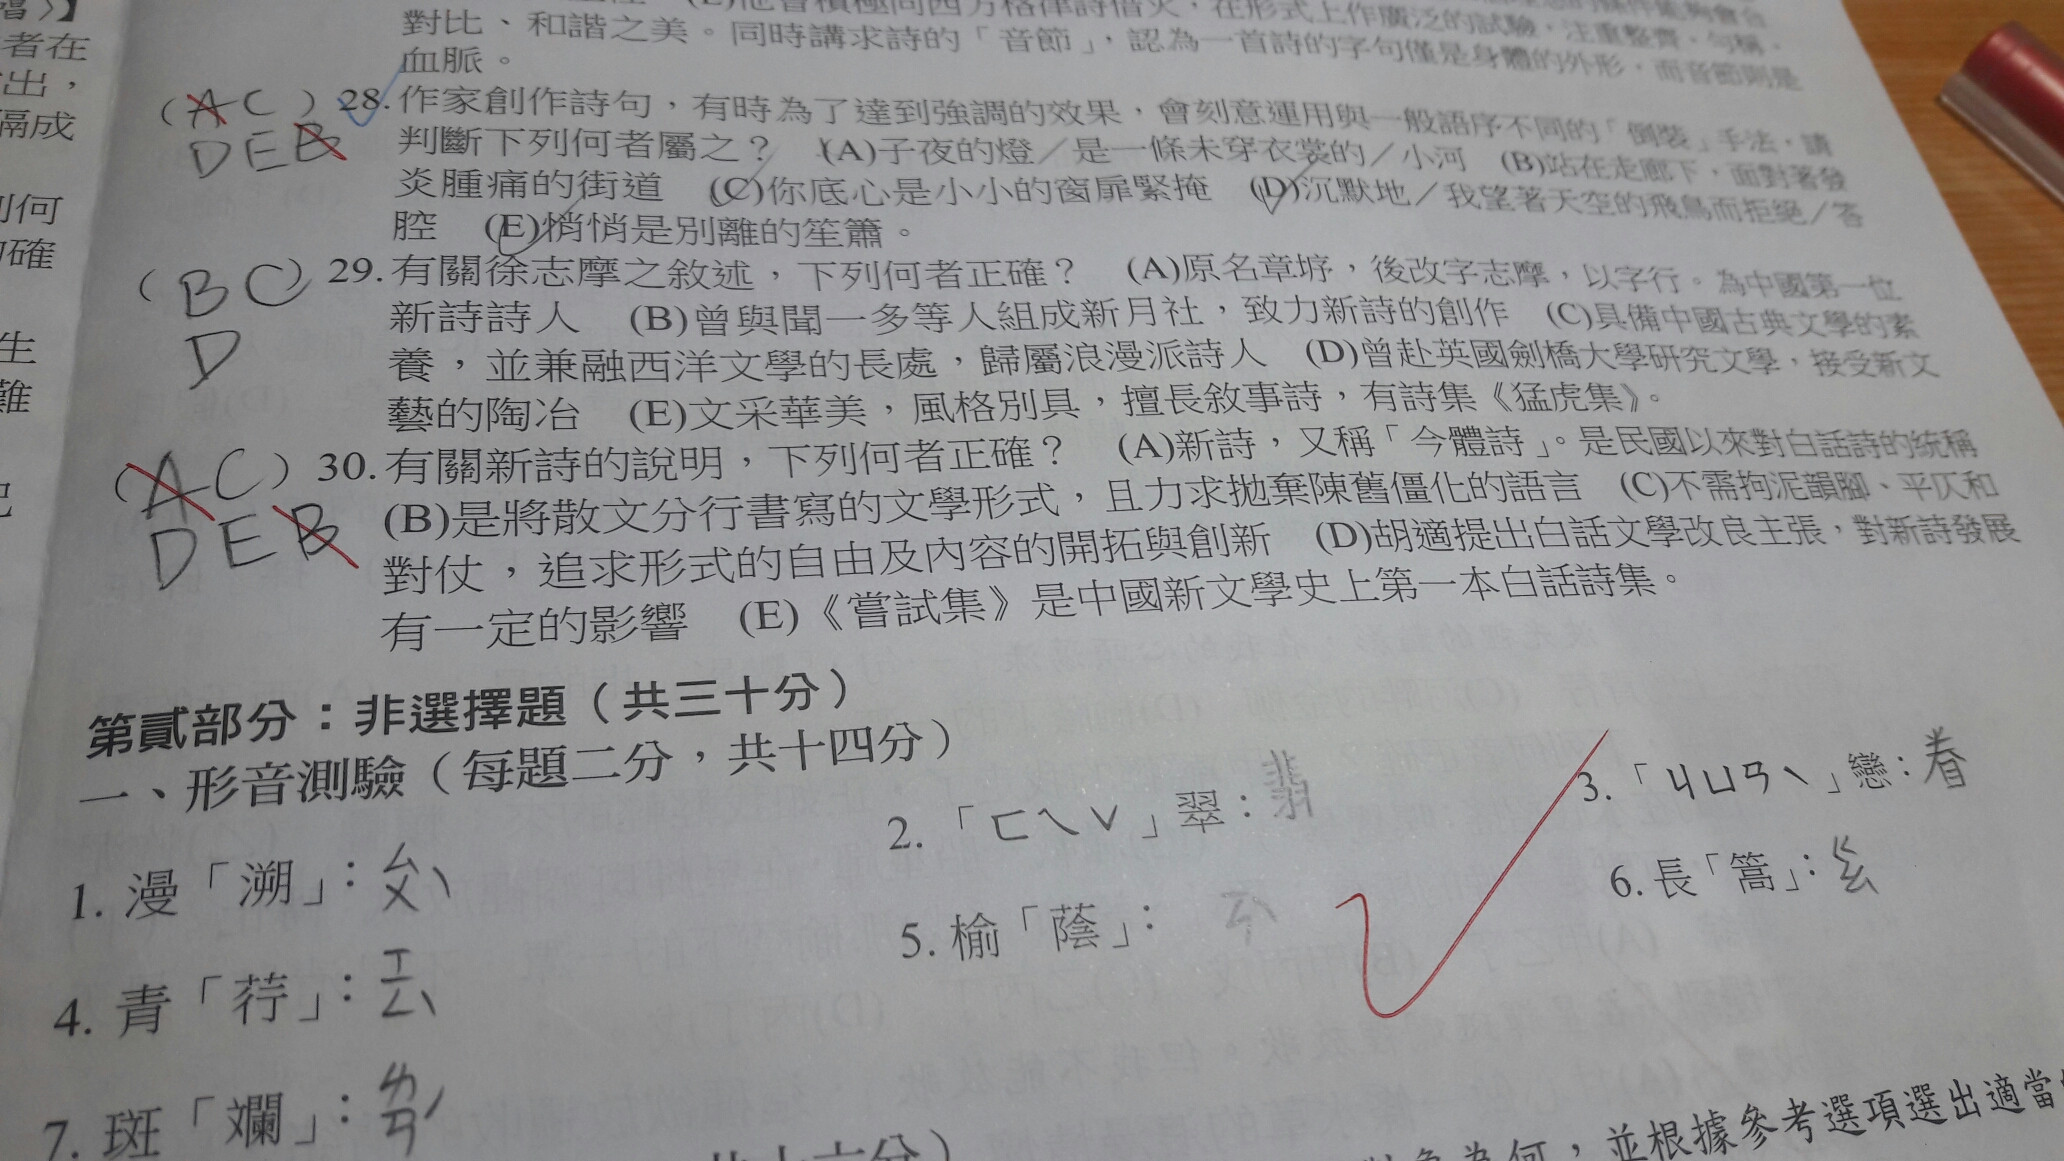 者在
出，
隔成
何
確
生
難
(E)他曾積極向西方格律詩借火，在形式上作廣泛的試驗，注重整齊、勻稱、
對比、和諧之美。同時講求詩的「音節」，認為一首詩的字句僅是身體的外形，而音節則是
血脈。
(A C) 28.作家創作詩句，有時為了達到強調的效果，會刻意運用與一般語序不同的「倒裝」手法，請
DEB 判斷下列何者屬之？ (A)子夜的燈／是一條未穿衣裳的／小河 (B)站在走廊下，面對著發
炎腫痛的街道 (C)你底心是小小的窗扉緊掩 (D)沉默地／我望著天空的飛鳥而拒絕／答
腔 (E)悄悄是別離的笙簫。
(BC) 29.有關徐志摩之敘述，下列何者正確？ (A)原名章垿，後改字志摩，以字行。為中國第一位
新詩詩人 (B)曾與聞一多等人組成新月社，致力新詩的創作 (C)具備中國古典文學的素
D 養，並兼融西洋文學的長處，歸屬浪漫派詩人 (D)曾赴英國劍橋大學研究文學，接受新文
藝的陶冶 (E)文采華美，風格別具，擅長敘事詩，有詩集《猛虎集》。
(AC) 30.有關新詩的說明，下列何者正確？ (A)新詩，又稱「今體詩」。是民國以來對白話詩的統稱
DEB (B)是將散文分行書寫的文學形式，且力求拋棄陳舊僵化的語言 (C)不需拘泥韻腳、平仄和
對仗，追求形式的自由及內容的開拓與創新 (D)胡適提出白話文學改良主張，對新詩發展
有一定的影響 (E)《嘗試集》是中國新文學史上第一本白話詩集。
第貳部分：非選擇題（共三十分）
一、形音測驗（每題二分，共十四分）
1. 漫「溯」：ㄙㄨˋ 2.「ㄈㄟˇ」翠：翡 3.「ㄐㄩㄢˋ」戀：眷
4. 青「荇」：ㄒㄧㄥˋ 5. 榆「蔭」：ㄧㄣˋ 6. 長「篙」：ㄍㄠ
7. 斑「斕」：ㄌㄢˊ
共十六分）
為何，並根據參考選項選出適當